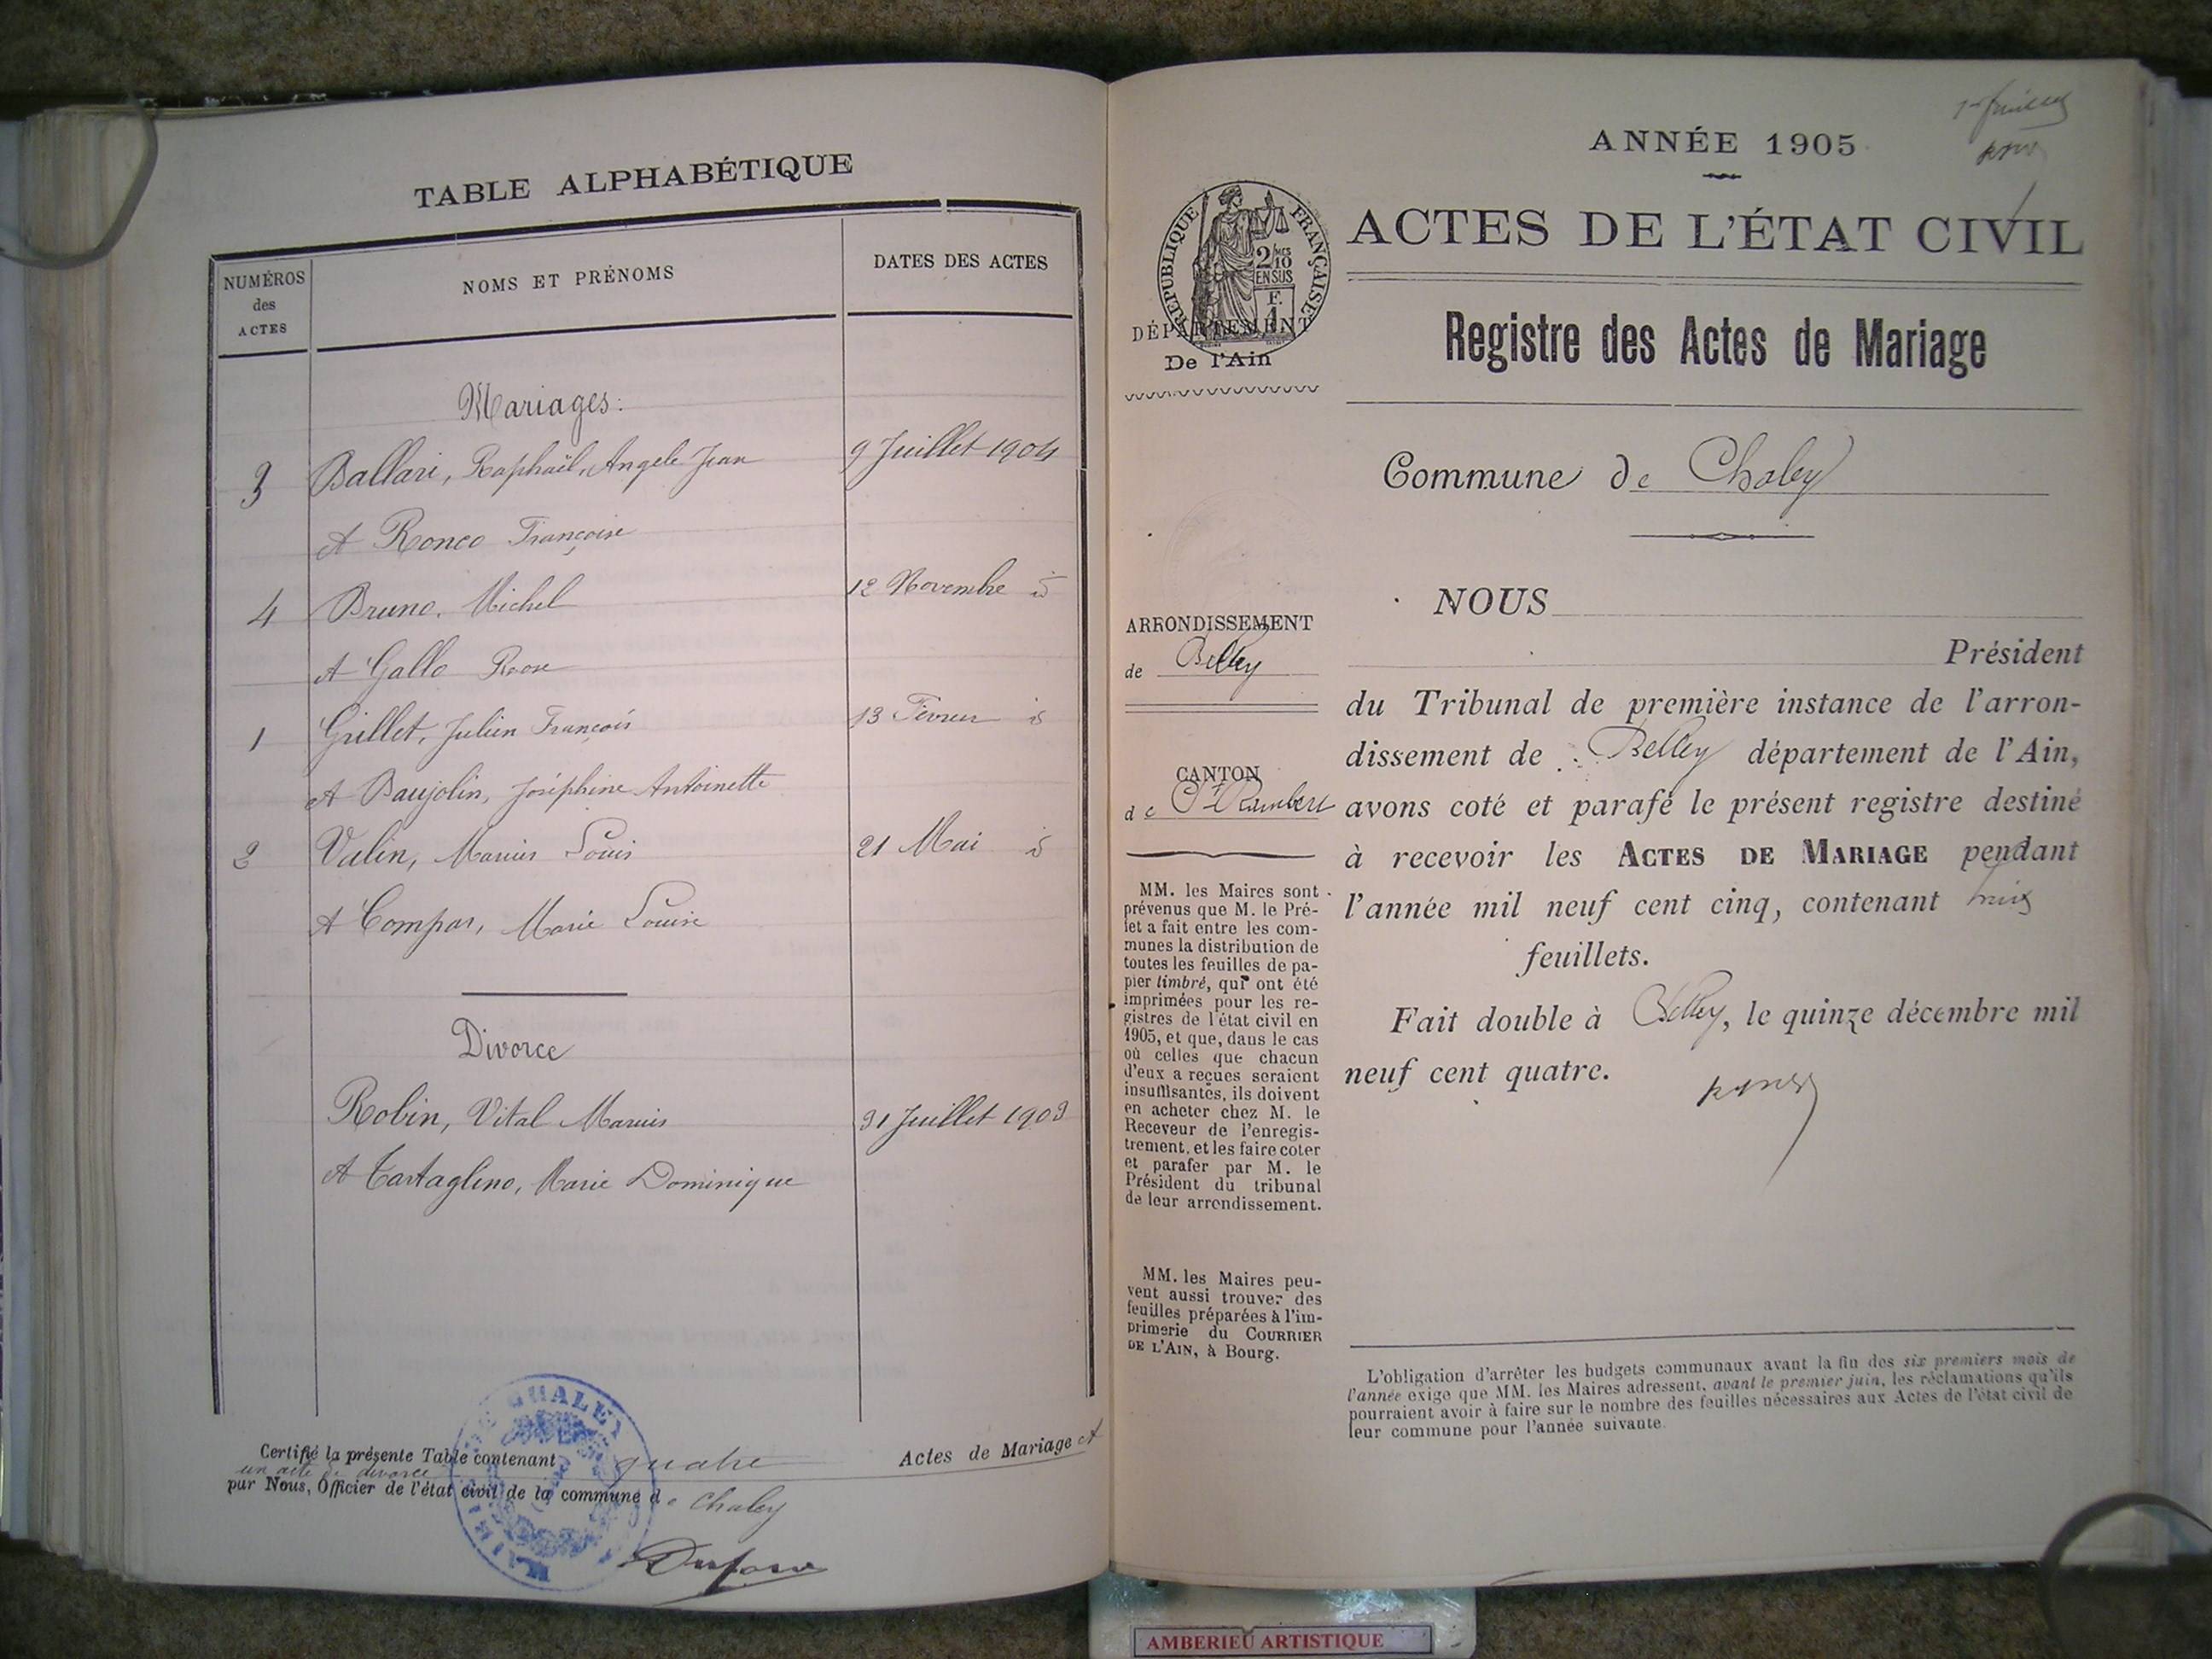 TABLE ALPHABÉTIQUE
NUMÉROS
des
ACTES
NOMS ET PRÉNOMS
DATES DES ACTES
Mariages:
3 Ballari, Raphaël, Angele Jean 9 Juillet 1904
et Ronco Françoise
4 Bruno, Michel 12 Novembre id
et Gallo Rose
1 Grillet, Julien François 13 Février id
et Baujolin, Joséphine Antoinette
2 Valin, Marius Louis 21 Mai id
et Compar, Marie Louise
Divorce
Robin, Vital Marius 31 Juillet 1903
et Tartaglino, Marie Dominique
Certifié la présente Table contenant quatre Actes de Mariage et
un acte de divorce
par Nous, Officier de l'état civil de la commune de Chaley
MAIRIE DE CHALEY
1er feuillet
ANNÉE 1905
ACTES DE L'ÉTAT CIVIL
RÉPUBLIQUE FRANÇAISE
2/10
EN SUS
1 F.
DÉPARTEMENT
De l'Ain
Registre des Actes de Mariage
Commune de Chaley
ARRONDISSEMENT
de Belley
CANTON
de St Rambert
MM. les Maires sont
prévenus que M. le Pré-
fet a fait entre les com-
munes la distribution de
toutes les feuilles de pa-
pier timbré, qui ont été
imprimées pour les re-
gistres de l'état civil en
1905, et que, dans le cas
où celles que chacun
d'eux a reçues seraient
insuffisantes, ils doivent
en acheter chez M. le
Receveur de l'enregis-
trement, et les faire coter
et parafer par M. le
Président du tribunal
de leur arrondissement.
MM. les Maires peu-
vent aussi trouver des
feuilles préparées à l'im-
primerie du COURRIER
DE L'AIN, à Bourg.
NOUS
Président
du Tribunal de première instance de l'arron-
dissement de Belley département de l'Ain,
avons coté et parafé le présent registre destiné
à recevoir les ACTES DE MARIAGE pendant
l'année mil neuf cent cinq, contenant trois
feuillets.
Fait double à Belley, le quinze décembre mil
neuf cent quatre.
L'obligation d'arrêter les budgets communaux avant la fin des six premiers mois de
l'année exige que MM. les Maires adressent, avant le premier juin, les réclamations qu'ils
pourraient avoir à faire sur le nombre des feuilles nécessaires aux Actes de l'état civil de
leur commune pour l'année suivante.
AMBERIEU ARTISTIQUE